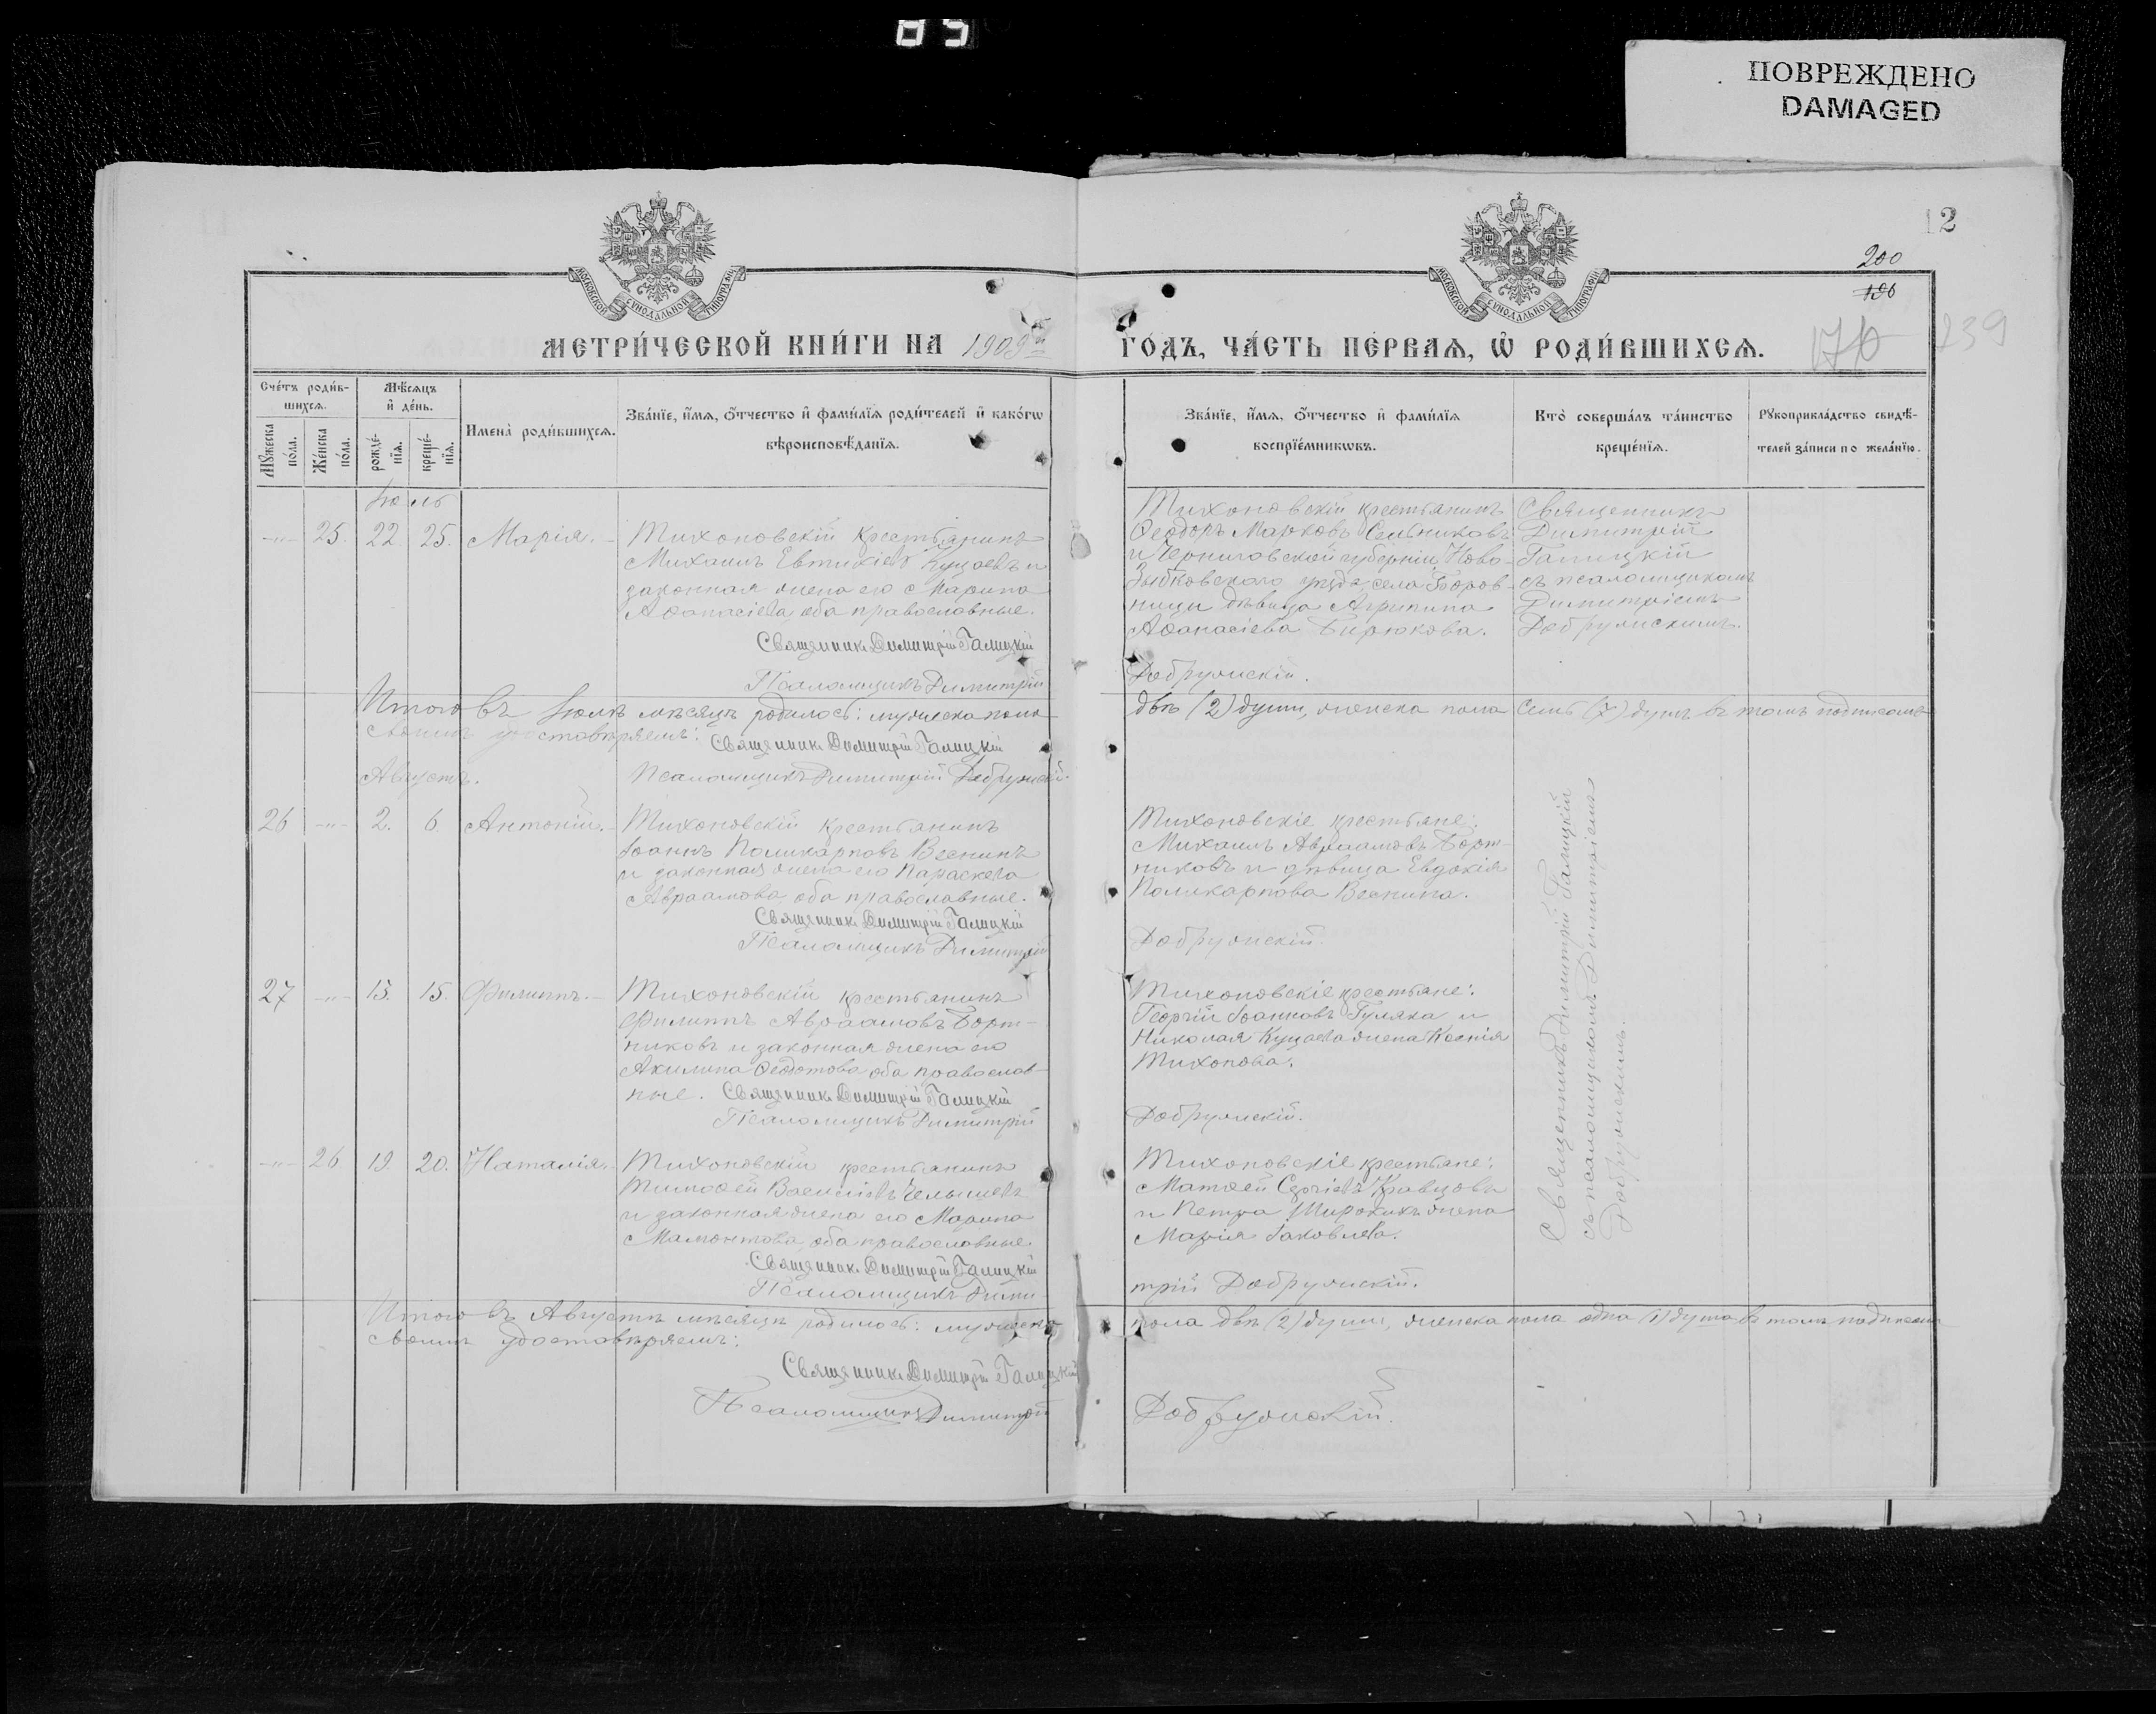 85
ПОВРЕЖДЕНО
DAMAGED
12
200
186
170 239
МОСКОВСКОЙ СѴНОДАЛЬНОЙ ТИПОГРАФІИ
МОСКОВСКОЙ СѴНОДАЛЬНОЙ ТИПОГРАФІИ
МЕТРИ́ЧЕСКОЙ КНИ́ГИ НА 1909й
ГО́ДЪ, ЧА́СТЬ ПЕ́РВАѦ, Ѡ҆ РОДИ́ВШИХСѦ.
Сче́тъ роди́в-
шихсѧ.
Мꙋ́жеска
по́ла.
Же́нска
по́ла.
Мѣ́сѧцъ
и҆ де́нь.
рожде́-
нїѧ.
креще́-
нїѧ.
Имена̀ роди́вшихсѧ.
Зва́нїе, и҆́мѧ, ѻ҆́тчество и҆ фами́лїѧ роди́телей и҆ како́гѡ
вѣроисповѣ́данїѧ.
Зва́нїе, и҆́мѧ, ѻ҆́тчество и҆ фами́лїѧ
воспрїе́мникѡвъ.
Кто̀ соверша́лъ та́инство
креще́нїѧ.
Рꙋкоприкла́дство свидѣ́-
телей за́писи по жела́нїю.
Іюль
-"- 25. 22. 25. Марія. Тихоновскій крестьянинъ
Михаилъ Евтихіевъ Куцаевъ и
законная жена его Марина
Аѳанасіева, оба православные.
Священник Димитрій Галицкій
Псаломщикъ Димитрій
Тихоновскій крестьянинъ
Ѳеодоръ Марковъ Сельниковъ
и Черниговской губерніи, Ново-
Зыбковского уѣзда села Боров-
ницы дѣвица Агрипина
Аѳанасіева Бирюкова.
Добрунскій.
Священникъ
Димитрій
Галицкій
съ псаломщикомъ
Димитріемъ
Добрунскимъ.
Итого въ Іюлѣ мѣсяцѣ родилось: мужеска пола
двѣ (2) души, женска пола семь (7) душъ въ томъ подписомъ
своимъ удостовѣряемъ: Священник Димитрій Галицкій
Псаломщикъ Димитрій Добрунскій.
Августъ.
26 -"- 2. 6 Антоній. Тихоновскій крестьянинъ
Іоаннъ Поликарповъ Веснинъ
и законная жена его Параскева
Авраамова, оба православные.
Священник Димитрій Галицкій
Псаломщикъ Димитрій
Тихоновскіе крестьяне:
Михаилъ Авраамовъ Борт-
никовъ и дѣвица Евдокія
Поликарпова Веснина.
Добрунскій.
27 -"- 13. 15. Филиппъ. Тихоновскій крестьянинъ
Филиппъ Авраамовъ Борт-
никовъ и законная жена его
Акилина Ѳедотова оба православ-
ные. Священник Димитрій Галицкій
Псаломщикъ Димитрій
Тихоновскіе крестьяне:
Георгій Іоанновъ Гуляка и
Николая Куцаева жена Ксенія
Тихонова.
Добрунскій.
-"- 26 19. 20. Наталія. Тихоновскій крестьянинъ
Тимоѳей Васильевъ
и законная жена его Марина
Мамонтова, оба православные
Священник Димитрій Галицкій
Псаломщикъ Дими-
Тихоновскіе крестьяне:
Матѳей Сергіевъ Кравцовъ
и Петра Широкихъ жена
Марія Іаковлева.
трій Добрунскій.
Священникъ Димитрій Галицкій
съ псаломщикомъ Димитріемъ
Добрунскимъ.
Итого въ Августѣ мѣсяцѣ родилось: мужеска
пола двѣ (2) души, женска пола одна (1) душа въ томъ подписомъ
своимъ удостовѣряемъ:
Священник Димитрій Галицкій
Псаломщикъ Димитрій
Добрунскій.